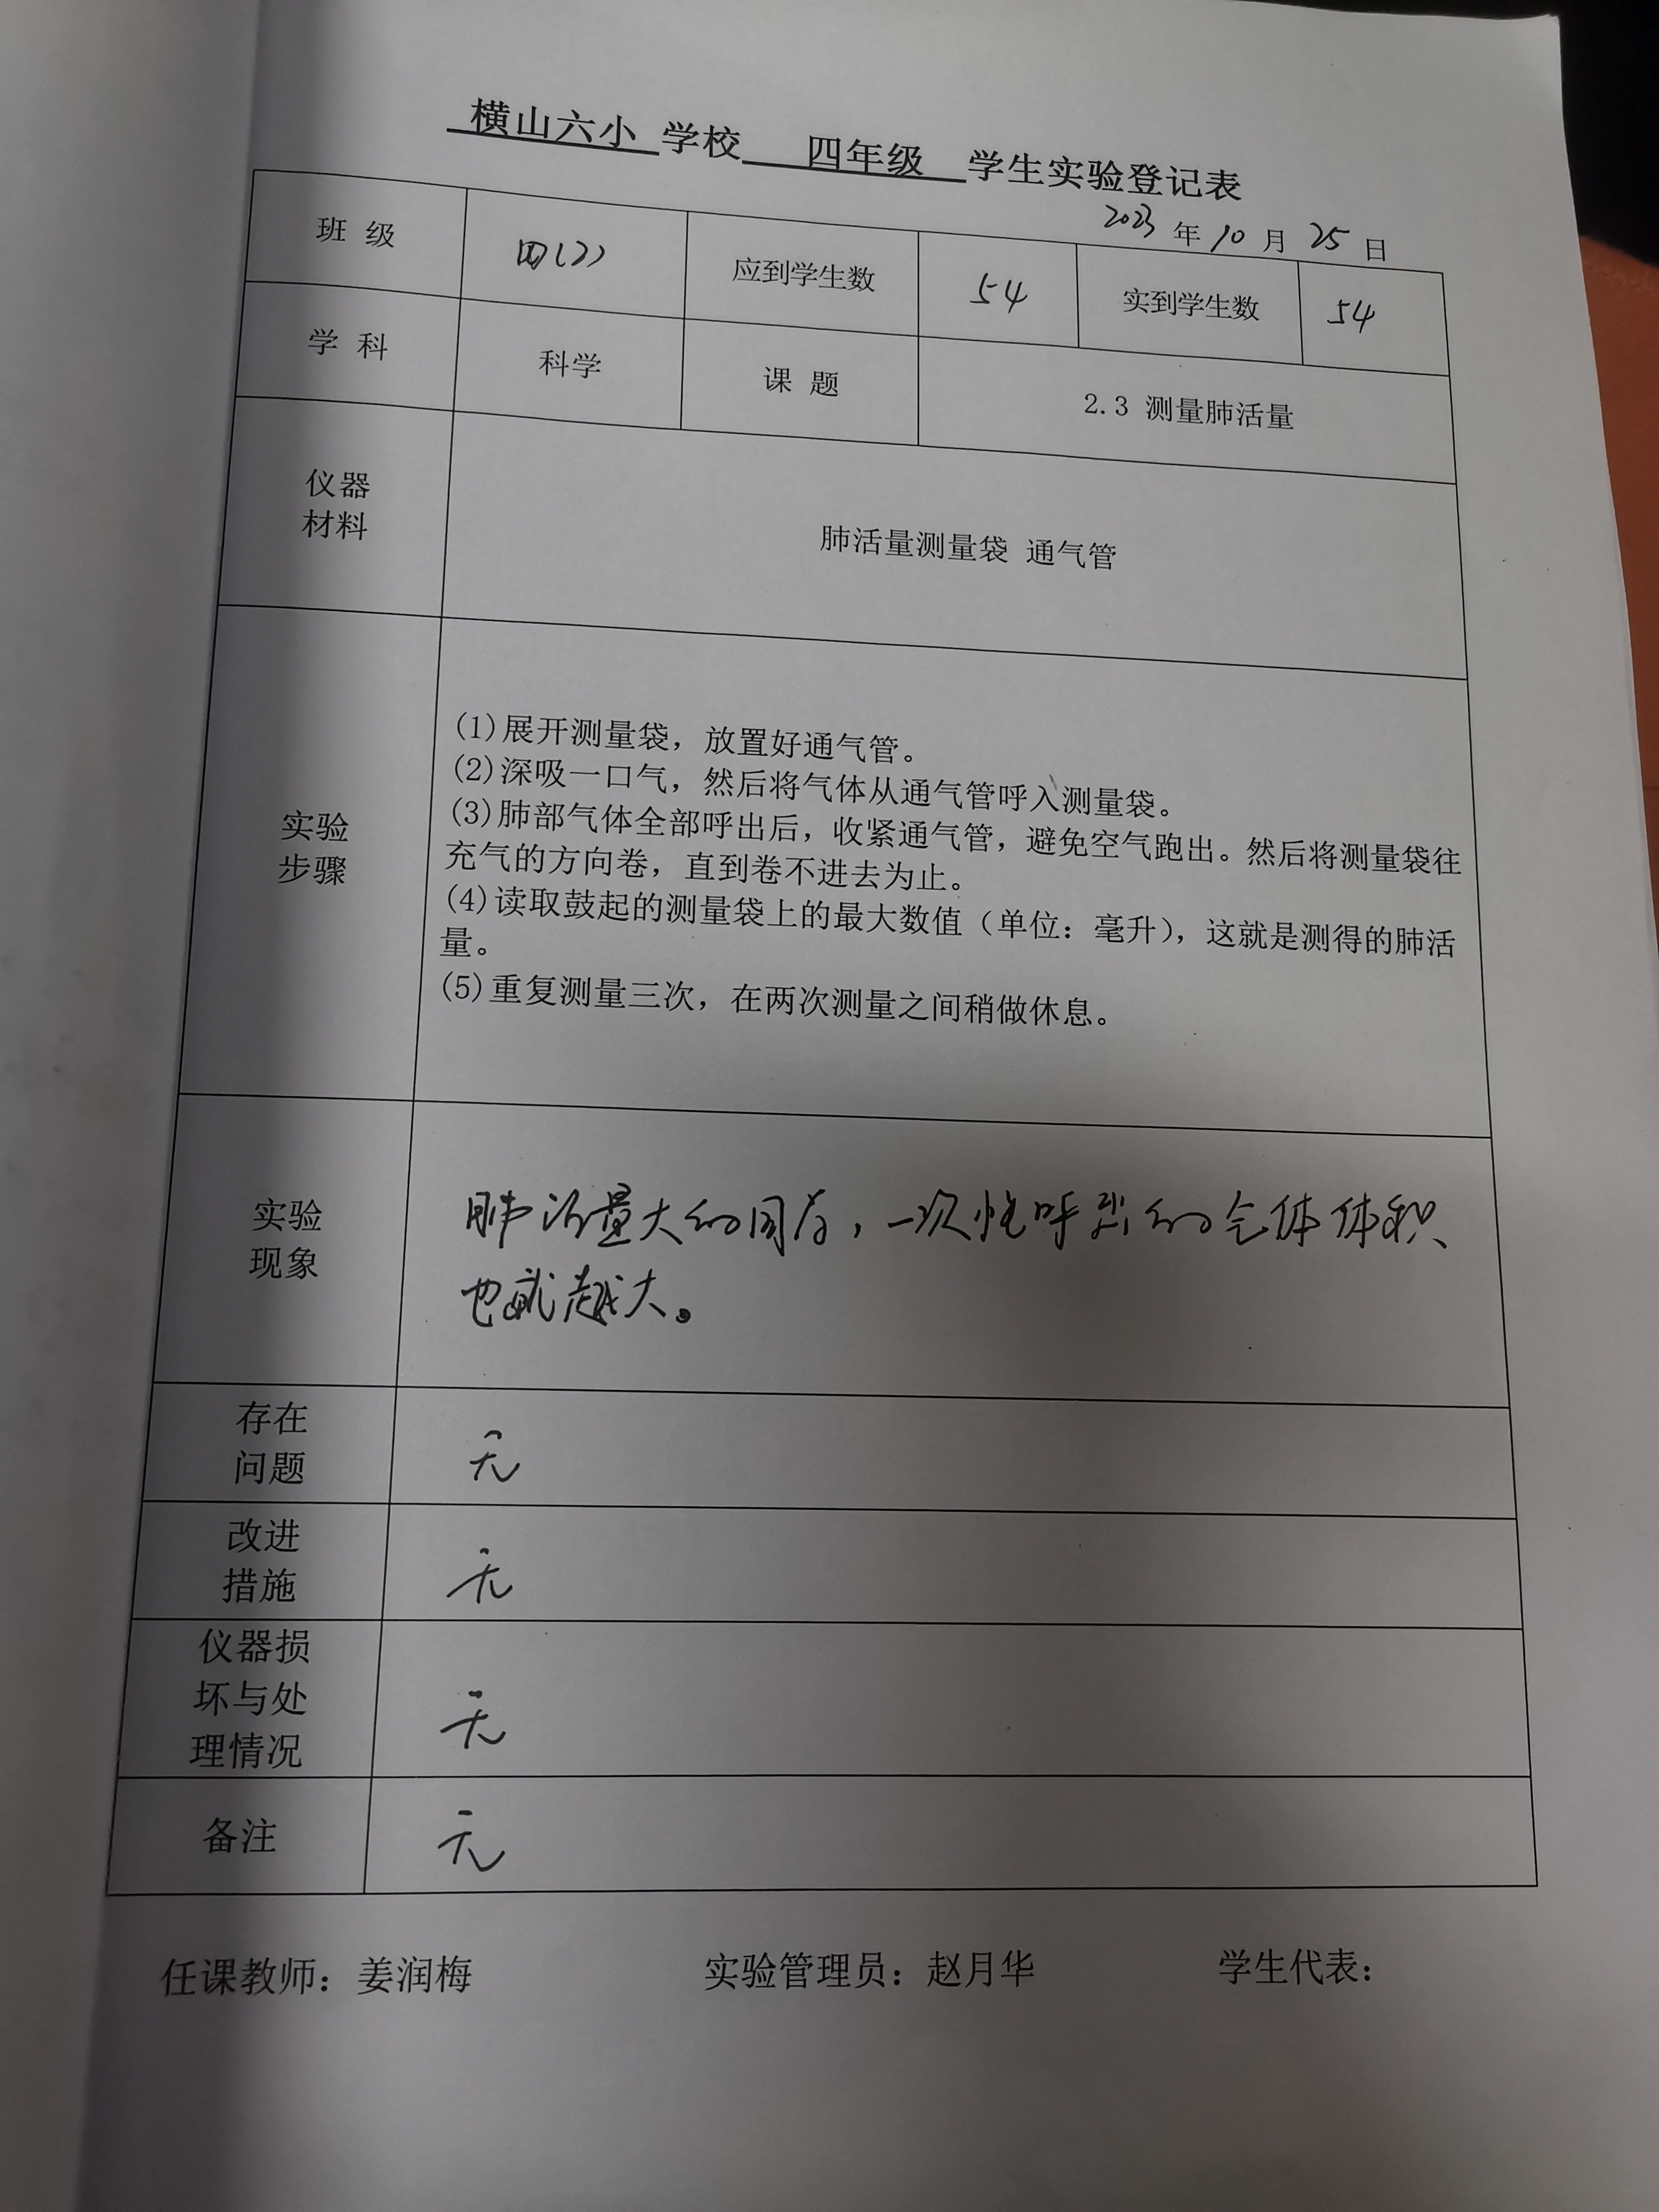 横山六小 学校 四年级 学生实验登记表
2023 年 10 月 25 日
班 级 四(2) 应到学生数 54 实到学生数 54
学 科 科学 课 题 2.3 测量肺活量
仪器
材料
肺活量测量袋 通气管
实验
步骤
(1)展开测量袋，放置好通气管。
(2)深吸一口气，然后将气体从通气管呼入测量袋。
(3)肺部气体全部呼出后，收紧通气管，避免空气跑出。然后将测量袋往
充气的方向卷，直到卷不进去为止。
(4)读取鼓起的测量袋上的最大数值（单位：毫升），这就是测得的肺活
量。
(5)重复测量三次，在两次测量之间稍做休息。
实验
现象
肺活量大的同学，一次性呼出的气体体积
也就越大。
存在
问题
无
改进
措施
无
仪器损
坏与处
理情况
无
备注
无
任课教师：姜润梅 实验管理员：赵月华 学生代表：